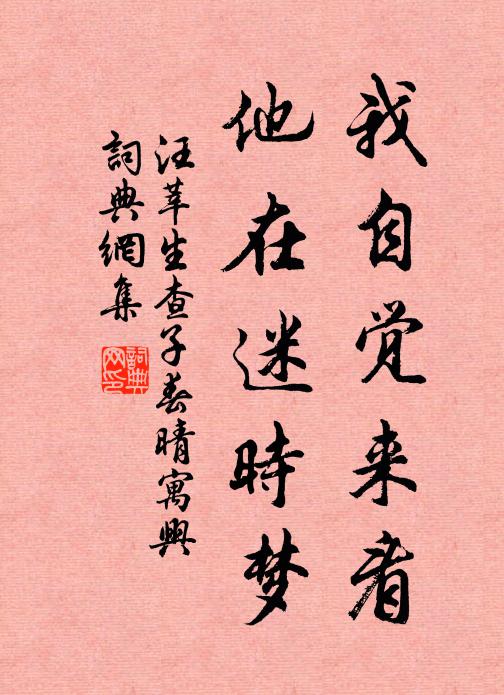 我自觉来者
他在迷時梦
汪莘生查子春晴寓興
詞典網集
詞典网印